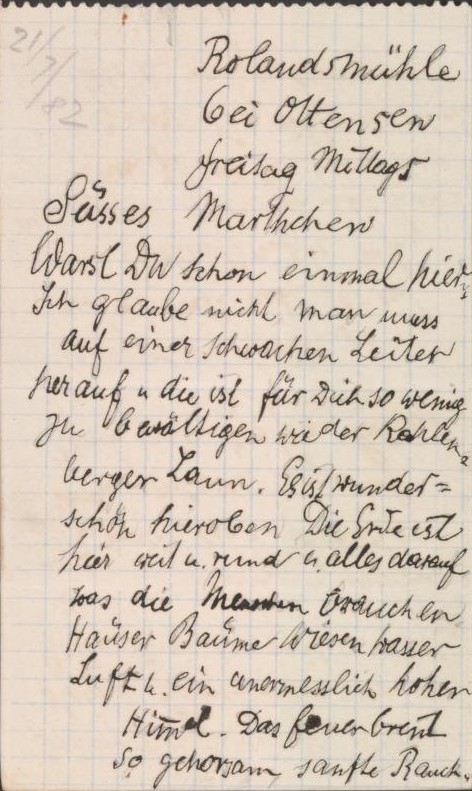 21/7/82
Rolandsmühle
bei Ottensen
freitag Mittags
Süsses Marthchen
Warst Du schon einmal hier?
Ich glaube nicht man muss
auf einer schwachen Leiter
herauf u die ist für Dich so wenig
zu bewältigen wie der Kahlen=
berger Zaun. Es ist wunder=
schön hieroben Die Erde ist
hier weit u. rund u. alles darauf
was die Menschen brauchen
Häuser Bäume Wiesen Wasser
Luft u. ein unermesslich hoher
Himel. Das feuer brent
so gehorsam, sanfte Rauch=